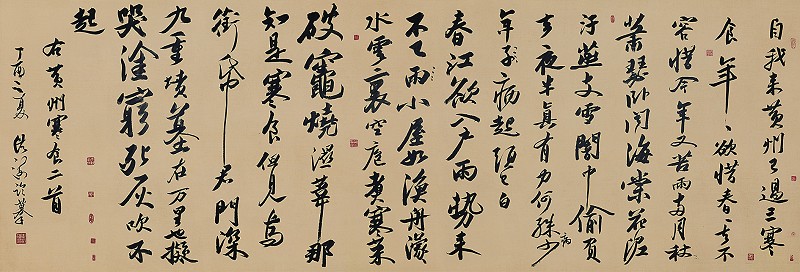 自我来黄州已過三寒
食年〻欲惜春〻去不
容惜今年又苦雨两月秋
蕭瑟卧闻海棠花泥
汙燕支雪闇中偷負
去夜半真有力何殊少
病
年子病起頭已白
春江欲入户雨勢来
不已雨小屋如漁舟濛〻
水雲裏空庖煮寒菜
破竈燒濕葦那
知是寒食但見烏
銜帋君門深
九重墳墓在万里也擬
哭塗窮死灰吹不
起
右黄州寒食二首
丁酉之夏